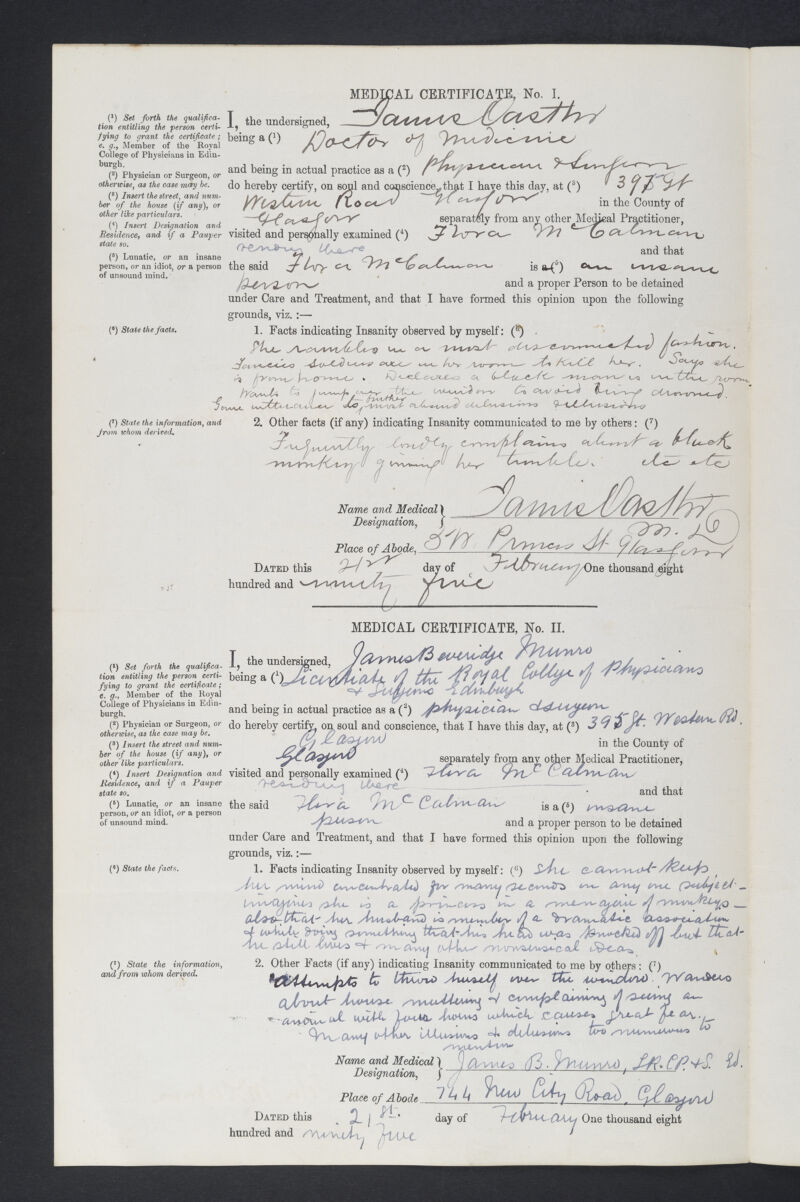 MEDICAL CERTIFICATE, No. I.
(¹) Set forth the qualifica-
tion entitling the person certi-
fying to grant the certificate;
e. g., Member of the Royal
College of Physicians in Edin-
burgh.
(²) Physician or Surgeon, or
otherwise, as the case may be.
(³) Insert the street, and num-
ber of the house (if any), or
other like particulars.
(⁴) Insert Designation and
Residence, and if a Pauper
state so.
(⁵) Lunatic, or an insane
person, or an idiot, or a person
of unsound mind.
I, the undersigned, James
being a (¹) Doctor of Medicine
and being in actual practice as a (²) Physician & Surgeon
do hereby certify, on soul and conscience, that I have this day, at (³) 395 Gt
Western Road Glasgow in the County of
Glasgow separately from any other Medical Practitioner,
visited and personally examined (⁴) Flora McCalman
residing there and that
the said Flora McCalman is a (⁵) an insane
person and a proper Person to be detained
under Care and Treatment, and that I have formed this opinion upon the following
grounds, viz. :—
(⁶) State the facts.
1. Facts indicating Insanity observed by myself: (⁶)
She rambles in a most disconnected fashion.
Fancies soldiers are in her room to kill her. Says she
is from home. Declares a black man is in the room.
Wants to jump over the window to avoid being drowned.
Gives utterance to further most absurd delusions & illusions
(⁷) State the information, and
from whom derived.
2. Other facts (if any) indicating Insanity communicated to me by others: (⁷)
Frequently loudly complains about a black
monkey giving her trouble. etc etc
Name and Medical
Designation,
James M.D
Place of Abode, 5 W. Princes St. Glasgow
DATED this 21st day of February One thousand eight
hundred and ninety five
MEDICAL CERTIFICATE, No. II.
(¹) Set forth the qualifica-
tion entitling the person certi-
fying to grant the certificate;
e. g., Member of the Royal
College of Physicians in Edin-
burgh.
(²) Physician or Surgeon, or
otherwise, as the case may be.
(³) Insert the street and num-
ber of the house (if any), or
other like particulars.
(⁴) Insert Designation and
Residence, and if a Pauper
state so.
(⁵) Lunatic, or an insane
person, or an idiot, or a person
of unsound mind.
I, the undersigned, James Beveridge Munro
being a (¹) Licentiate of the Royal College of Physicians
& Surgeons Edinburgh
and being in actual practice as a (²) physician & surgeon
do hereby certify, on soul and conscience, that I have this day, at (³) 395 Gt. Western Rd.
Glasgow in the County of
Glasgow separately from any other Medical Practitioner,
visited and personally examined (⁴) Flora McCalman
residing there and that
the said Flora McCalman is a (⁵) insane
person and a proper person to be detained
under Care and Treatment, and that I have formed this opinion upon the following
grounds, viz. :—
(⁶) State the facts.
1. Facts indicating Insanity observed by myself: (⁶) She cannot keep
her mind concentrated for many seconds on any one subject—
imagines she is a princess in a menagerie of monkeys—
also that her husband is member of a dramatic association
& while doing something that his head was knocked off but that
he still lives & many other nonsensical ideas.
(⁷) State the information,
and from whom derived.
2. Other Facts (if any) indicating Insanity communicated to me by others: (⁷)
Attempts to throw herself over the window. Wanders
about house muttering & complaining of seeing an
animal with four horns which causes great fear.
Many other illusions & delusions too numerous to
mention
Name and Medical
Designation,
James B. Munro, L.R.C.P. & S. Ed.
Place of Abode 744 New City Road, Glasgow
DATED this 21st. day of February One thousand eight
hundred and ninety five